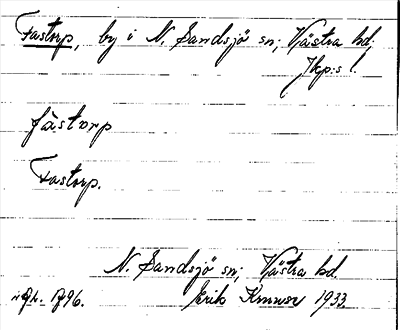 Fastorp, by i N. Sandsjö sn; Västra hd;
Jkp:s l.
fästorp
Fastorp.
N. Sandsjö sn; Västra hd.
1796. Erik 1933